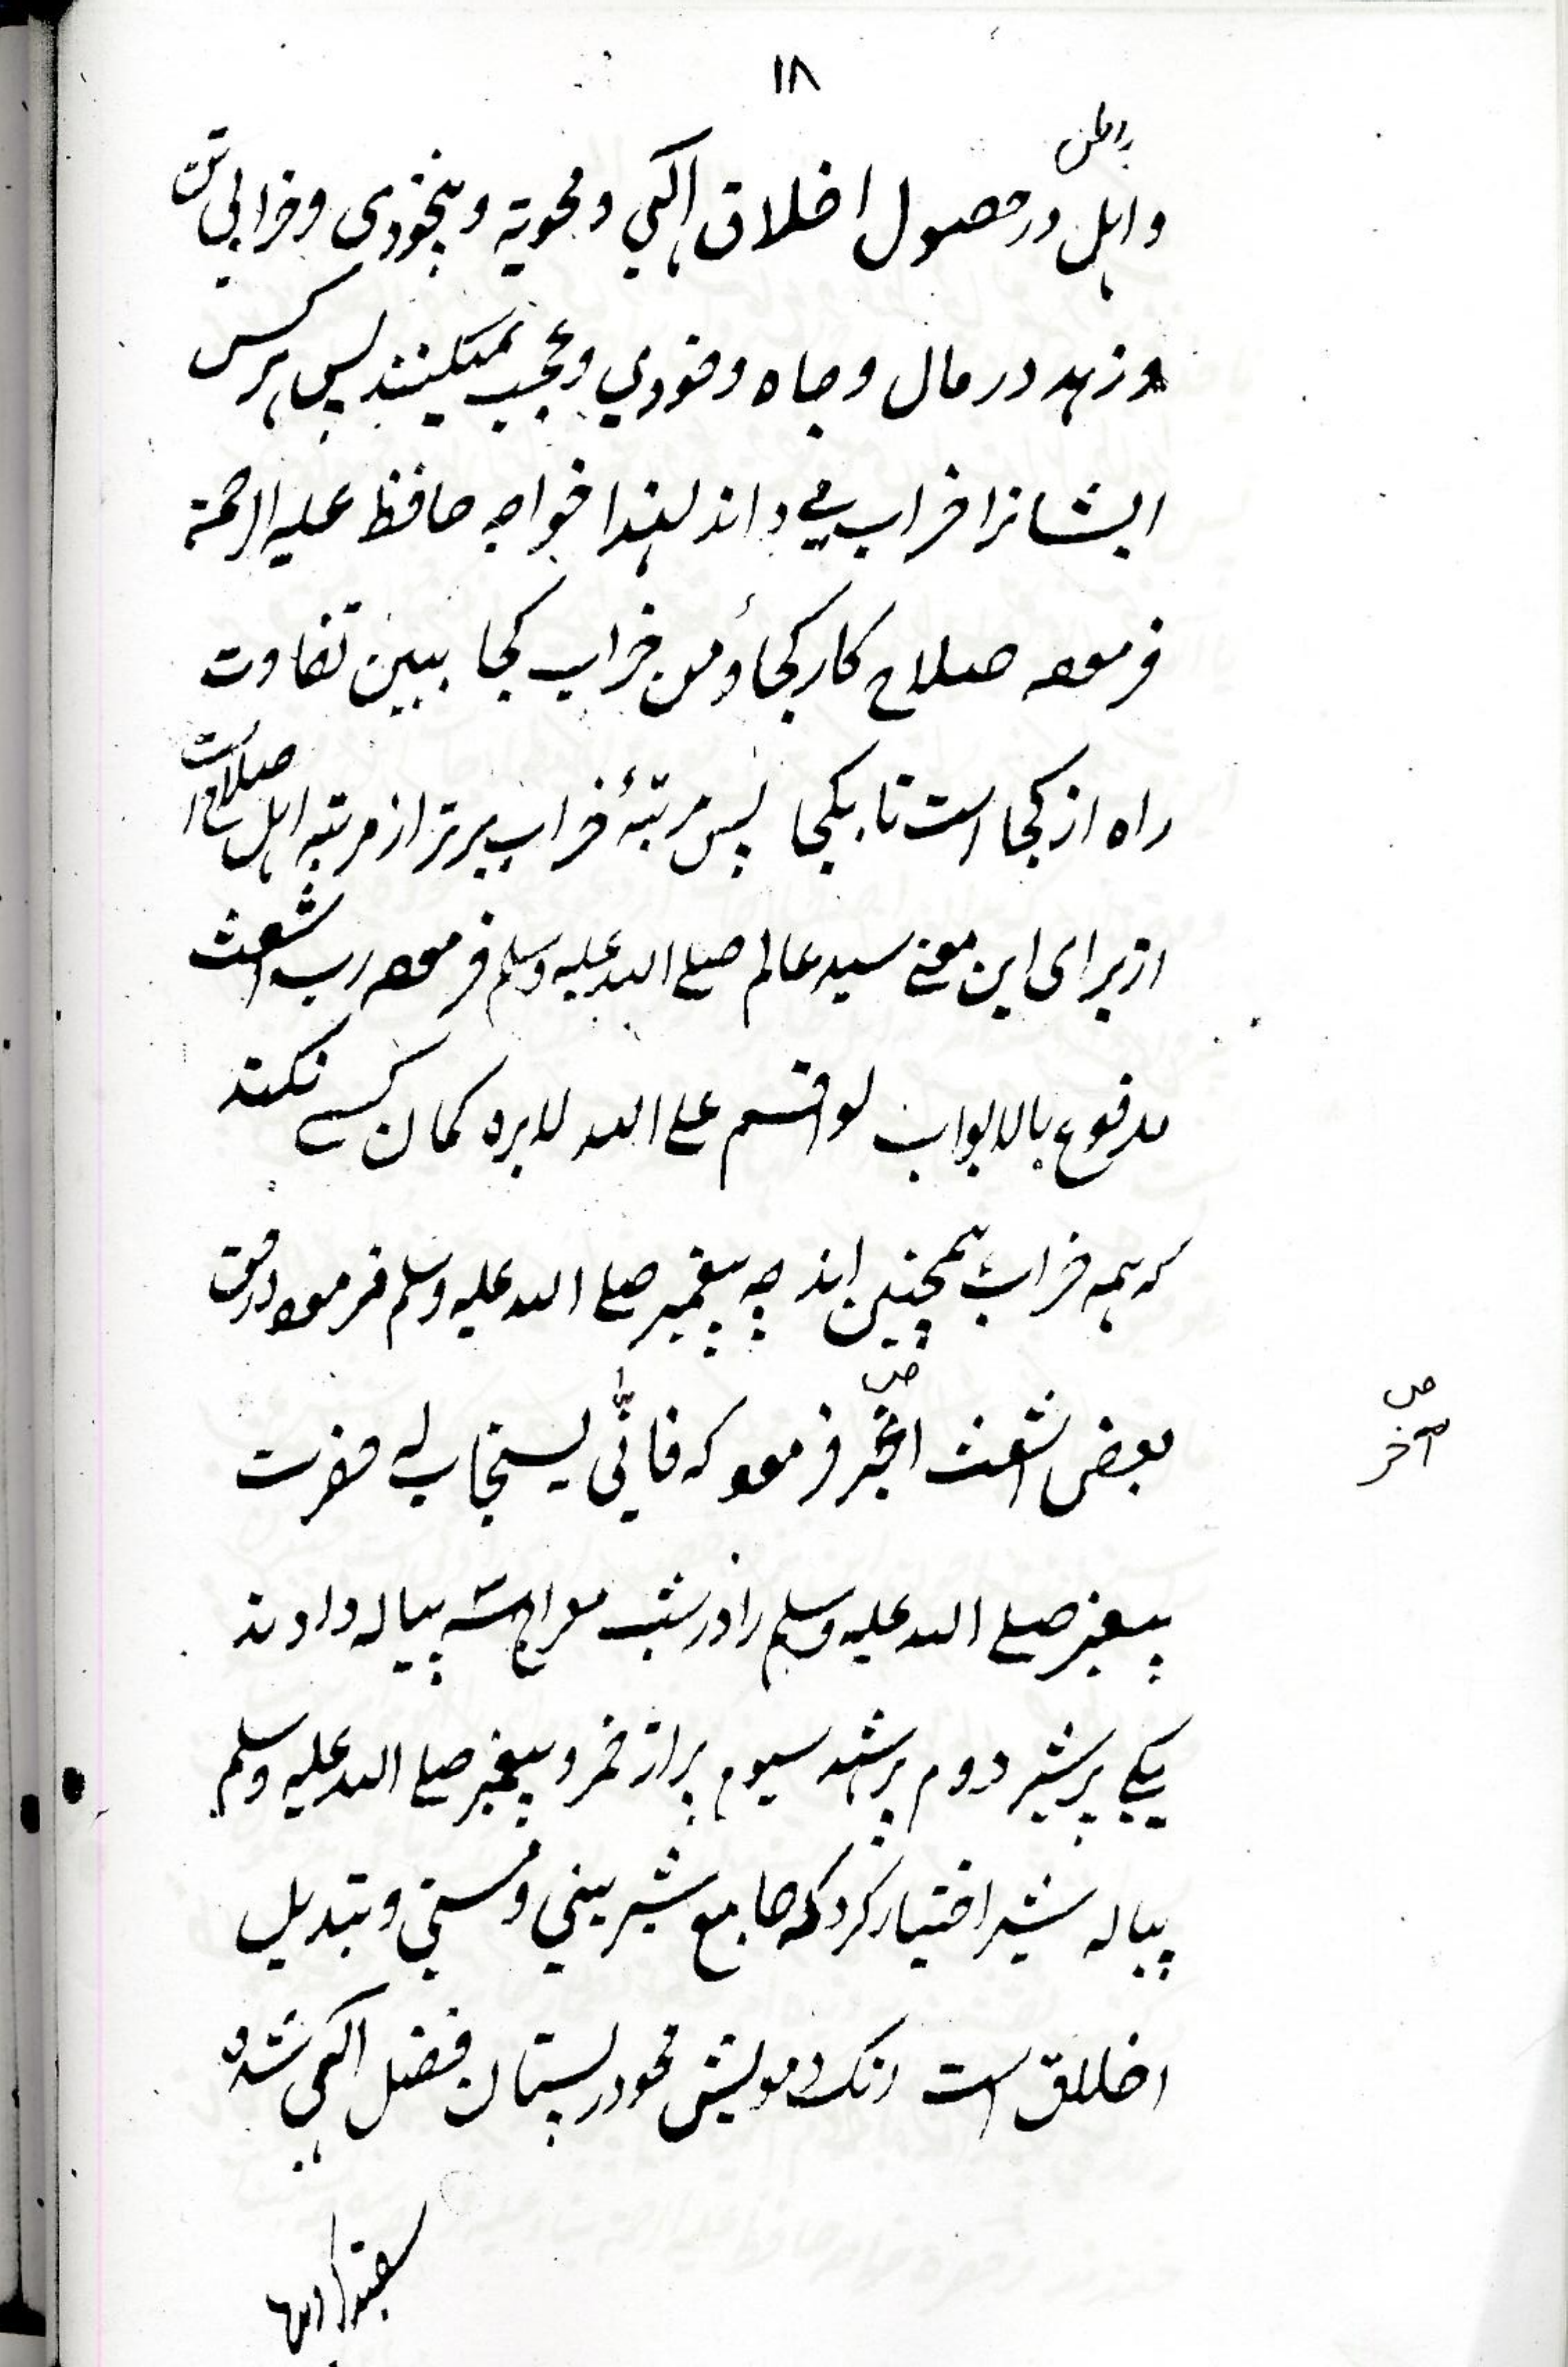 ۱۸
باطن
و اہل در حصول اخلاق الہی و محویۃ و بیخودی و خرابی ست
و زہد در مال و جاہ و خودی و عجب نمیکنند پس ہر کس
ایشانرا خراب می داند لہذا خواجہ حافظ علیہ الرحمۃ
فرمودہ صلاح کار کجا و من خراب کجا ببین تفاوت
راہ از کجا است تا بکجا پس مرتبۂ خراب برتر از مرتبہ اہل صلاح است
از برای این معنے سید عالم صلے اللہ علیہ وسلم فرمودہ رب اشعث
مدفوع بالابواب لو اقسم علے اللہ لابرہ گمان کسے نکند
کہ ہمہ خراب ہمچنین اند چہ پیغمبر صلے اللہ علیہ وسلم فرمود در حق
بعض اشعث اغبر فرمود کہ فانّٰی یستجاب لہ حضرت
آخر
پیغمبر صلے اللہ علیہ وسلم را در شب معراج سہ پیالہ دادند
یکے پر شیر دوم پر شہد سیوم پر از خمر و پیغمبر صلے اللہ علیہ وسلم
پیالہ شیر اختیار کرد کہ جامع شیرینی و مستی و تبدیل
اخلاق است رنگ مویش محو در پستان فضل الہی شدہ